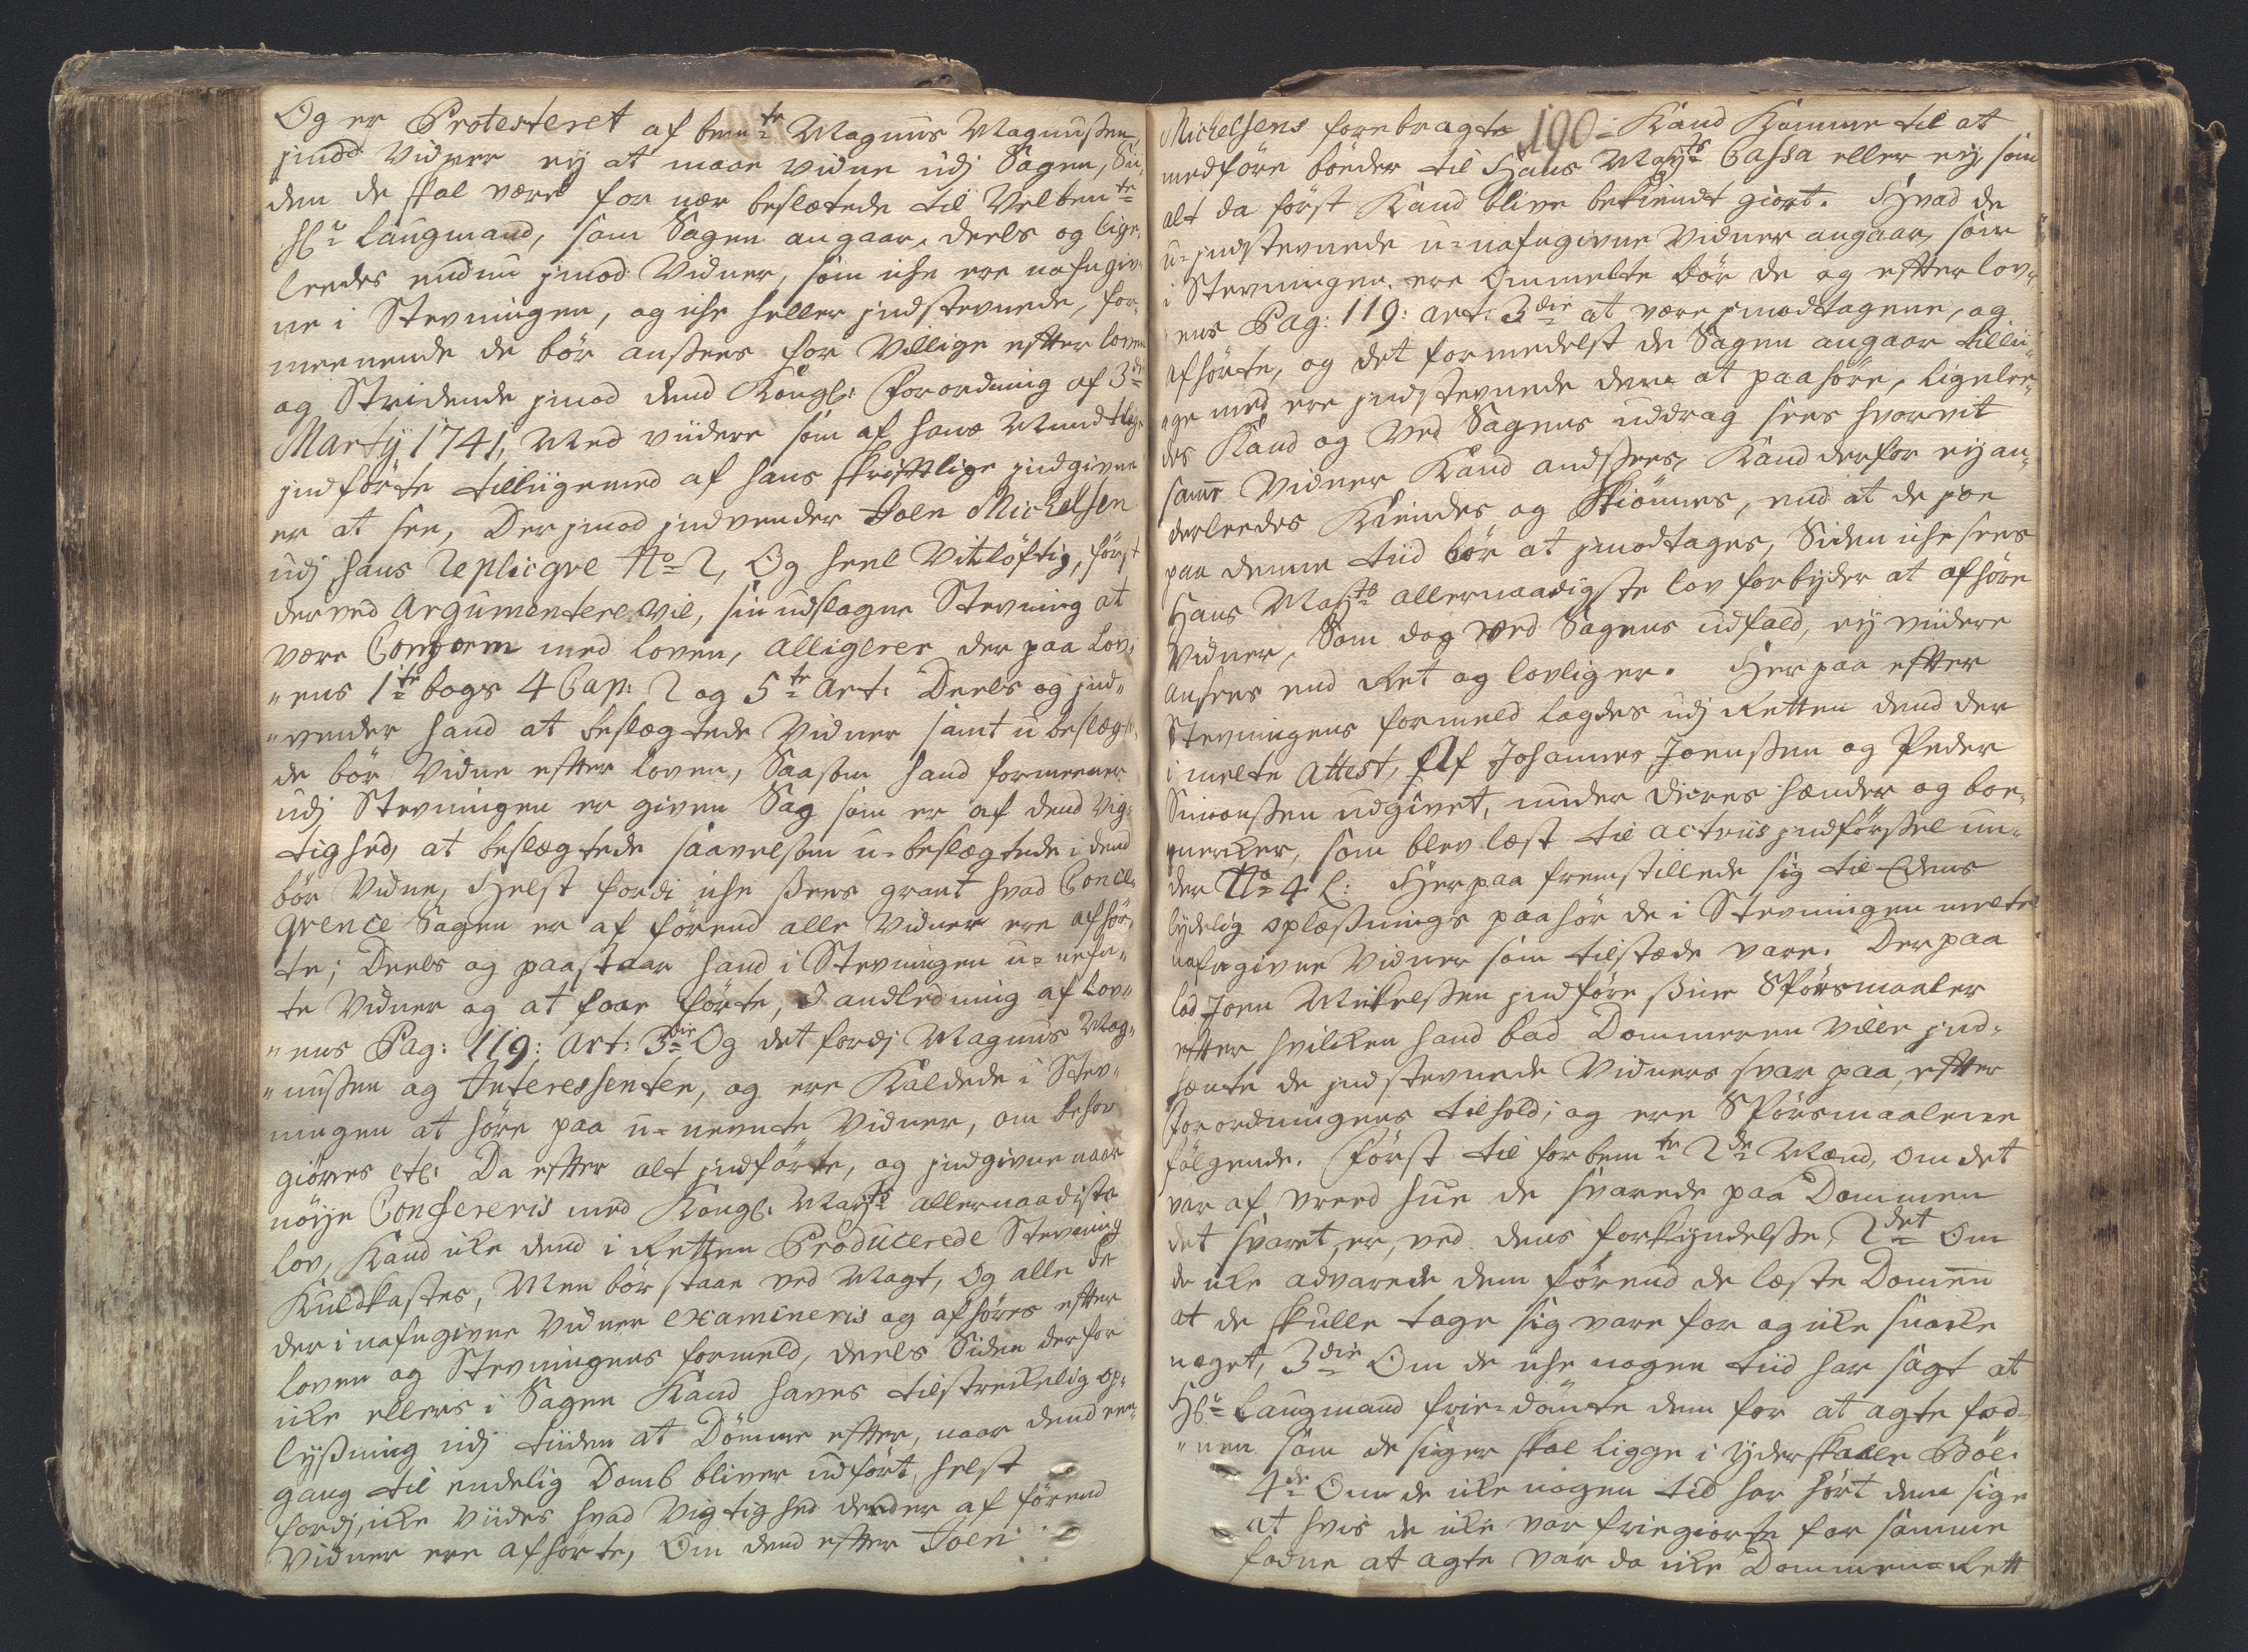 Og er Protesteret af bemte Magnus Magnusßen
jmod Vidner ey at maae vidne udj Sagen, Si¬
den de skal være for nær beslætede til Velbemte
Hr Laugmand, som Sagen angaar, deels og lige¬
leedes endnu jmod Vidner, som iche ere nafngiv¬
ne i Stevningen, og iche heller jndstevnede, for¬
meenende de bör ansees for Villige efter loven
og Stridende jmod dend Kongl: Forordning af 3de
Martÿ 1741, Med viidere som af hans Mundtlig
jndförte tilliigemed af hans skriftlige jndgivne
er at see, Der jmod jndvender Joen Michelsen
udj hans Replicqve No 2, Og heel Vitlöftig, först
derved Argumentere vil, sin udslagne Stevning at
være Conform med loven, alligerer der paa Lov¬
ens 1te bogs 4 Cap: 2 og 5te Art: Deels og jnd¬
vender hand at beslægtede Vidner samt u beslægte¬
de bör Vidne efter loven, Saasom hand formeener
udj Stevningen er given Sag som er af dend Vig¬
tighed, at beslægtede saavelsom u-beslægtede i dend
bör Vidne, Helst fordi iche sees grant hvad Conce¬
qvence Sagen er af förend alle Vidner ere afhör¬
te; Deels og paastaar hand i Stevningen u-nefn¬
te Vidner og at faae förte, I andledning af Lov¬
ens Pag: 119: Art: 3die Og det fordj Magnus Mag¬
nusßen og Interessenter, og ere Kaldede i Stev¬
ningen at höre paa u-nevnte Vidner, om behov
giöres etc: Da efter alt jndförte, og jndgivne naar
nöÿe Confereris med Kongl: Maÿts allernaadiste
lov, Kand ike dend i Retten Producerede Stevning
Kuldkastes, Men bör staae ved Magt, Og alle de
der i nafngivne Vidner examineris og afhöres efter
loven og Stevningens formeld, deels Siden derfor
ike ellers i Sagen Kand haves tilstrekelig op¬
lysßning udj tiiden at Dömme efter, naar dend een¬
gang til endelig Domb bliver udfört, helst
fordj, ike viides hvad Vigtighed dend er af förend
Vidner ere afhörte, Om dend efter Joen
190
Michelsens forebragte Kand Komme til at
medföre böeder til Hans Maÿts Cassa eller eÿ, som
alt da först Kand blive bekiendt giort. Hvad de
u-jndstevnede u-nafngivne Vidner angaar, som
i Stevningen ere Ommelte bör de og efter lov¬
ens Pag: 119: art: 3die at være jmodtagene, og
afhörte, og det formedelst de Sagen angaar tillii¬
ge med ere jndstevnede dem at paahöre, ligelee¬
des Kand og Ved Sagens uddrag sees hvorvit
samme Vidner Kand andsees, Kand derfor eÿ an¬
derleedes Kiendes og Skiönnes, end at de joe
paa denne tiid bör at jmodtages, Siden iche sees
Hans Mayts allernaadigste lov forbyder at afhöre
Vidner, Som dog ved Sagens udfald, eÿ viidere
ansees end Ret og lovlig er. Her paa efter
Stevningens formeld lagdes udj Retten dend der
i melte Attest, Af Johannes Joensßen og Peder
Simonsßen udgivet, under dieres hænder og boe¬
merker, som blev læst til actens jndförßel un¬
der No 4 L: Herpaa fremstillede sig til Edens
lydelig oplæsßnings paahör de i Stevningen melte
nafngivne Vidner som tilstæde vare. Der paa
lod Joen Mikelsßen jndföre sine Spörsmaaler
efter hvilken hand bad Dommeren Ville jnd¬
hænte de jndstevnede Vidners svar paa, efter
Forordningens tilhold; og ere Spörsmaalene
fölgende. Först til forbemte 2de Mænd, om det
var af Vreed hue de svarede paa Dommen
det svaret er, ved dens forkyndelsße, 2det Om
de ike advarede dem förend de læste Domen
at de skulle tage sig vare for og ike snakke
noget, 3die Om de iche nogen tiid har sagt at
Hr Laugmand frie-dömte dem for at agte fod¬
nen som de siger skal ligge i yderskalle Böl.
4de Om de ike nogen tid har hört dem sige
at hvis de ike var friegiorte for samme
fodne at agte var da ike Dommen Rett